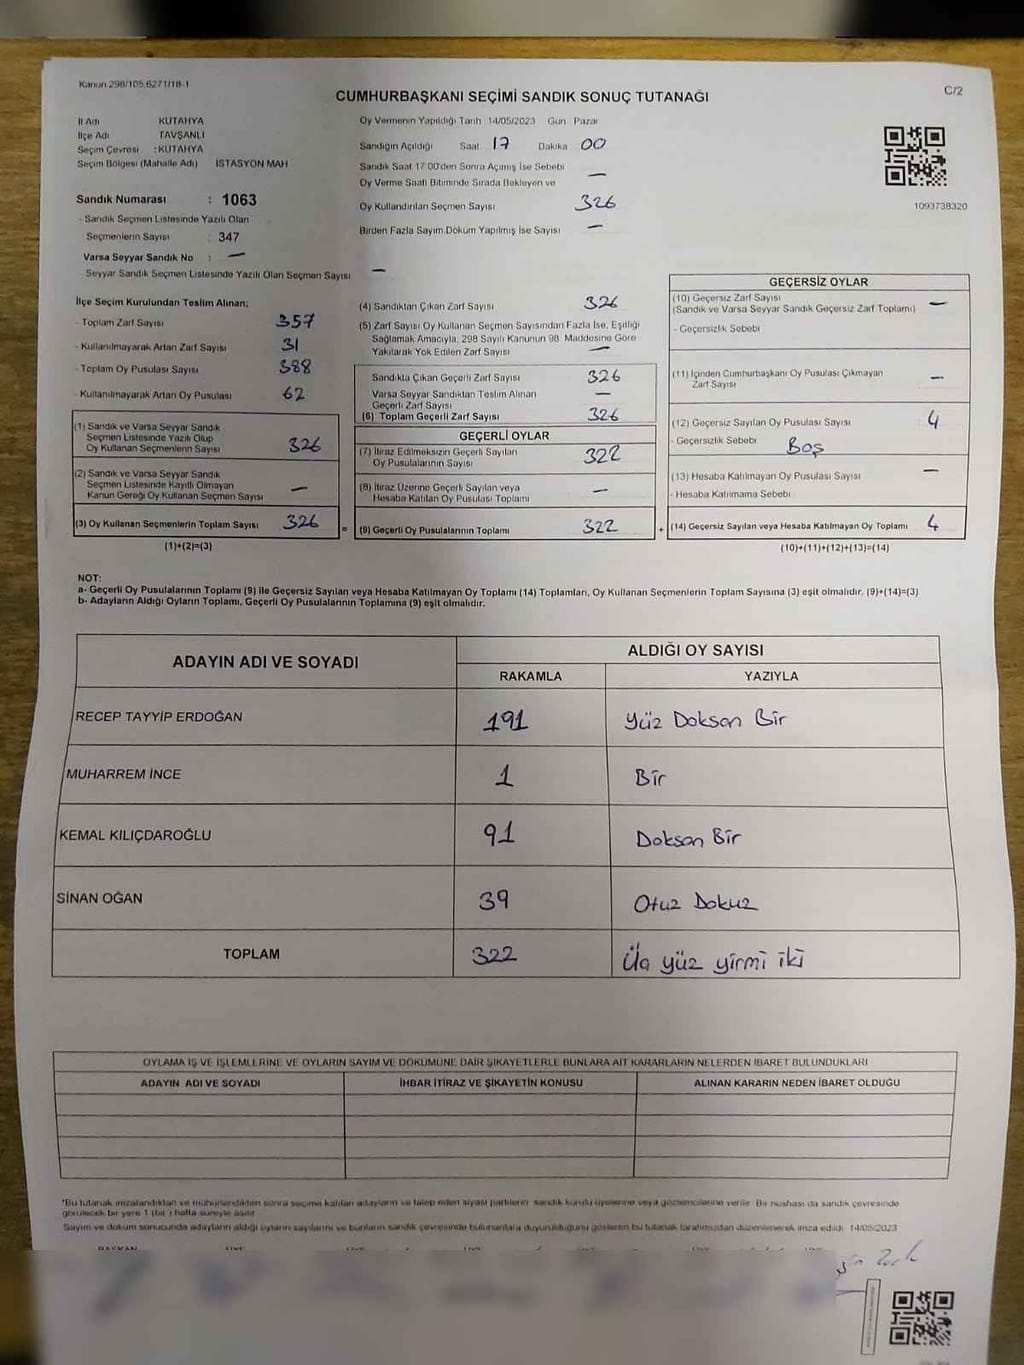 Kanun 298/105,6271/18-1
CUMHURBAŞKANI SEÇİMİ SANDIK SONUÇ TUTANAĞI
C/2
İl Adı KUTAHYA
İlçe Adı TAVŞANLI
Seçim Çevresi : KUTAHYA
Seçim Bölgesi (Mahalle Adı) İSTASYON MAH
Oy Vermenin Yapıldığı Tarih 14/05/2023 Gün Pazar
Sandığın Açıldığı Saat 17 Dakika 00
Sandık Saat 17.00'den Sonra Açılmış İse Sebebi —
Oy Verme Saati Bitiminde Sırada Bekleyen ve
Oy Kullandırılan Seçmen Sayısı 326
Birden Fazla Sayım Döküm Yapılmış İse Sayısı —
1093738320
Sandık Numarası : 1063
- Sandık Seçmen Listesinde Yazılı Olan
Seçmenlerin Sayısı : 347
Varsa Seyyar Sandık No : —
- Seyyar Sandık Seçmen Listesinde Yazılı Olan Seçmen Sayısı —
İlçe Seçim Kurulundan Teslim Alınan;
- Toplam Zarf Sayısı 357
- Kullanılmayarak Artan Zarf Sayısı 31
- Toplam Oy Pusulası Sayısı 388
- Kullanılmayarak Artan Oy Pusulası 62
(1) Sandık ve Varsa Seyyar Sandık
Seçmen Listesinde Yazılı Olup
Oy Kullanan Seçmenlerin Sayısı 326
(2) Sandık ve Varsa Seyyar Sandık
Seçmen Listesinde Kayıtlı Olmayan
Kanun Gereği Oy Kullanan Seçmen Sayısı —
(3) Oy Kullanan Seçmenlerin Toplam Sayısı 326 =
(1)+(2)=(3)
(4) Sandıktan Çıkan Zarf Sayısı 326
(5) Zarf Sayısı Oy Kullanan Seçmen Sayısından Fazla İse, Eşitliği
Sağlamak Amacıyla, 298 Sayılı Kanunun 98. Maddesine Göre
Yakılarak Yok Edilen Zarf Sayısı —
Sandıkta Çıkan Geçerli Zarf Sayısı 326
Varsa Seyyar Sandıktan Teslim Alınan
Geçerli Zarf Sayısı —
(6) Toplam Geçerli Zarf Sayısı 326
GEÇERLİ OYLAR
(7) İtiraz Edilmeksizin Geçerli Sayılan
Oy Pusulalarının Sayısı 322
(8) İtiraz Üzerine Geçerli Sayılan veya
Hesaba Katılan Oy Pusulası Toplamı —
(9) Geçerli Oy Pusulalarının Toplamı 322 +
GEÇERSİZ OYLAR
(10) Geçersiz Zarf Sayısı —
(Sandık ve Varsa Seyyar Sandık Geçersiz Zarf Toplamı)
- Geçersizlik Sebebi
(11) İçinden Cumhurbaşkanı Oy Pusulası Çıkmayan
Zarf Sayısı —
(12) Geçersiz Sayılan Oy Pusulası Sayısı 4
- Geçersizlik Sebebi Boş
(13) Hesaba Katılmayan Oy Pusulası Sayısı —
- Hesaba Katılmama Sebebi
(14) Geçersiz Sayılan veya Hesaba Katılmayan Oy Toplamı 4
(10)+(11)+(12)+(13)=(14)
NOT:
a- Geçerli Oy Pusulalarının Toplamı (9) ile Geçersiz Sayılan veya Hesaba Katılmayan Oy Toplamı (14) Toplamları, Oy Kullanan Seçmenlerin Toplam Sayısına (3) eşit olmalıdır. (9)+(14)=(3)
b- Adayların Aldığı Oyların Toplamı, Geçerli Oy Pusulalarının Toplamına (9) eşit olmalıdır.
ADAYIN ADI VE SOYADI ALDIĞI OY SAYISI
RAKAMLA YAZIYLA
RECEP TAYYİP ERDOĞAN 191 Yüz Doksan Bir
MUHARREM İNCE 1 Bir
KEMAL KILIÇDAROĞLU 91 Doksan Bir
SİNAN OĞAN 39 Otuz Dokuz
TOPLAM 322 Üç yüz yirmi iki
OYLAMA İŞ VE İŞLEMLERİNE VE OYLARIN SAYIM VE DÖKÜMÜNE DAİR ŞİKAYETLERLE BUNLARA AİT KARARLARIN NELERDEN İBARET BULUNDUKLARI
ADAYIN ADI VE SOYADI İHBAR İTİRAZ VE ŞİKAYETİN KONUSU ALINAN KARARIN NEDEN İBARET OLDUĞU
*Bu tutanak imzalandıktan ve mühürlendikten sonra seçime katılan adayların ve talep eden siyasi partilerin sandık kurulu üyelerine veya gözlemcilerine verilir. Bir nüshası da sandık çevresinde
görülecek bir yere 1 (bir) hafta süreyle asılır.
Sayım ve döküm sonucunda adayların aldığı oyların sayılarını ve bunların sandık çevresinde bulunanlara duyurulduğunu gösteren bu tutanak tarafımızdan düzenlenerek imza edildi. 14/05/2023